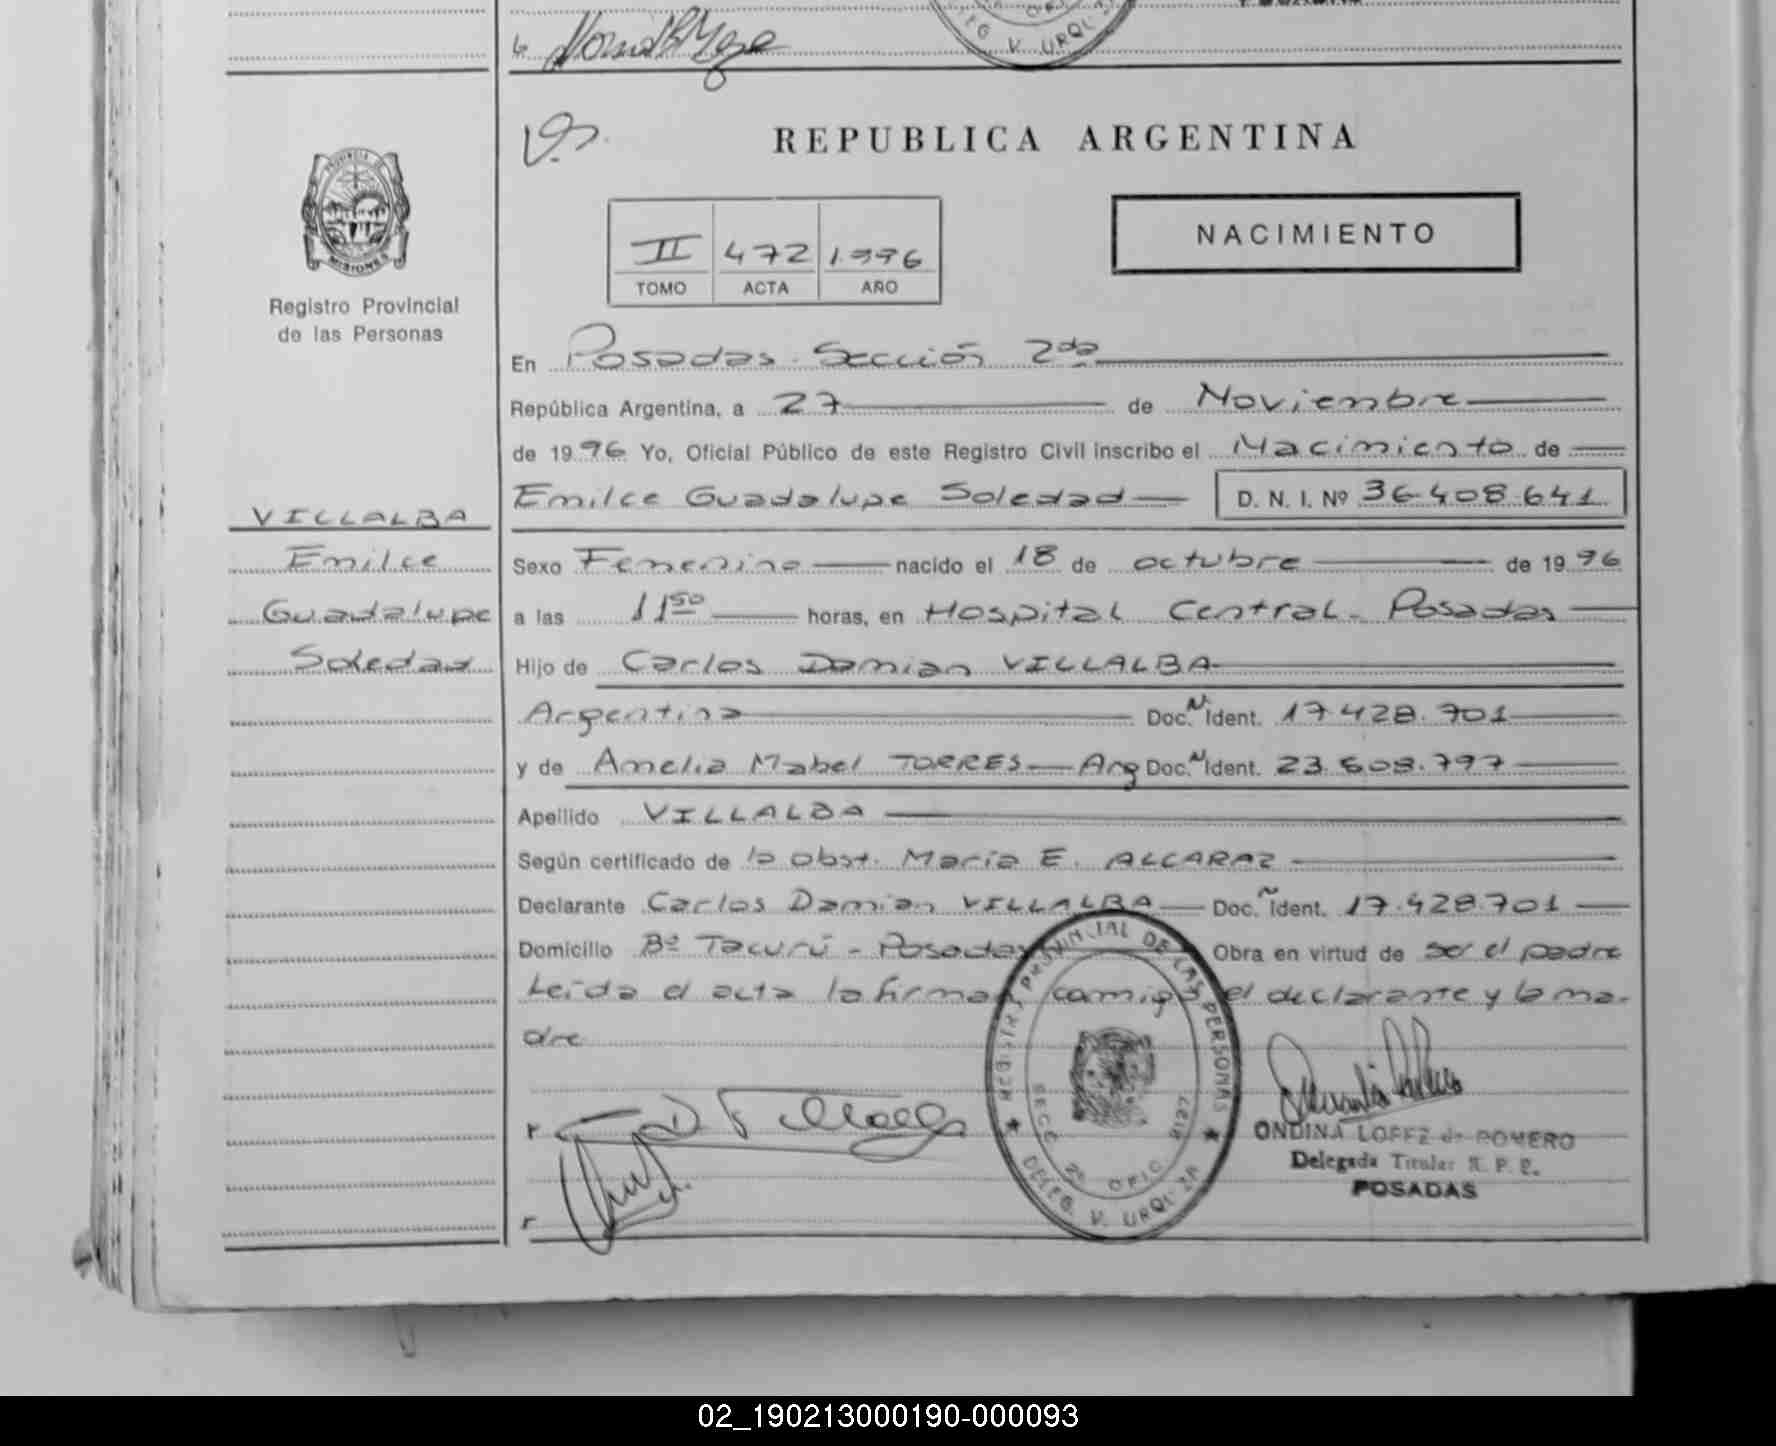 DELEG. V. URQUIZA
REPUBLICA ARGENTINA
PROVINCIA DE MISIONES
Registro Provincial
de las Personas
II 472 1.996
TOMO ACTA AÑO
NACIMIENTO
En Posadas. Sección 2da
República Argentina, a 27 de Noviembre
de 1996 Yo, Oficial Público de este Registro Civil inscribo el Nacimiento de
Emilce Guadalupe Soledad D. N. I. Nº 36.408.641
VILLALBA
Emilce
Guadalupe
Soledad
Sexo Femenino nacido el 18 de octubre de 1996
a las 11 50 horas, en Hospital Central - Posadas
Hijo de Carlos Damian VILLALBA
Argentina Doc. N Ident. 17.428.701
y de Amelia Mabel TORRES - Arg Doc. N Ident. 23.608.797
Apellido VILLALBA
Según certificado de la obst. Maria E. ALCARAZ
Declarante Carlos Damian VILLALBA Doc. Ident. 17.428.701
Domicilio Bº Tacurú - Posadas Obra en virtud de ser el padre
Leida el acta la firman conmigo el declarante y la ma-
dre
REGISTRO PROVINCIAL DE LAS PERSONAS
SECC 2ª OFIC
DELEG. V. URQUIZA
ONDINA LOPEZ de ROMERO
Delegada Titular R. P. P.
POSADAS
02_190213000190-000093